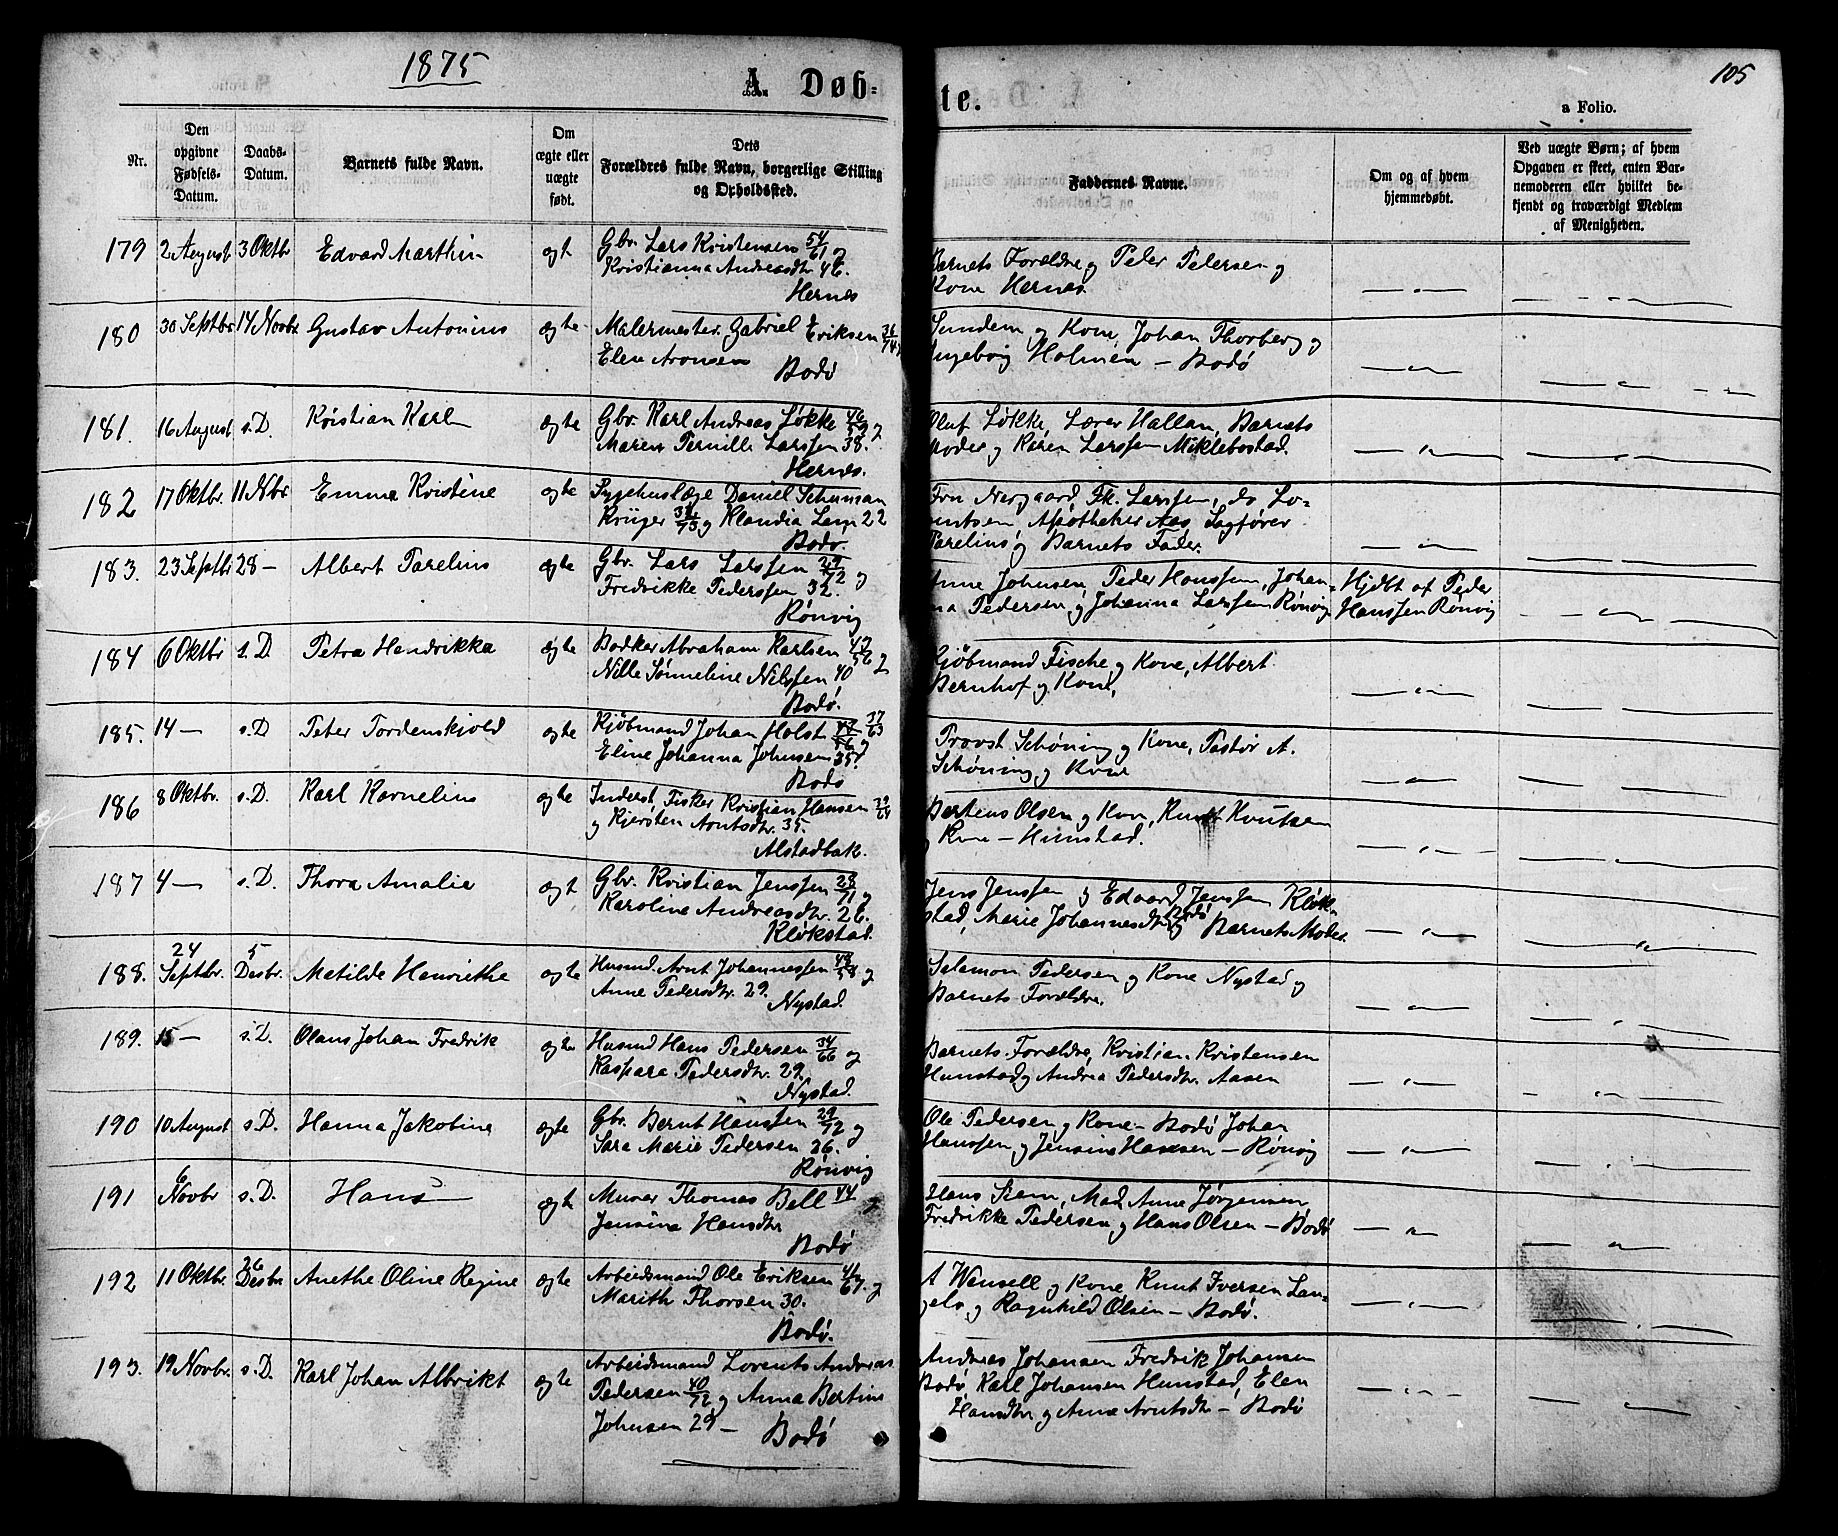 1875
105
A. Døb=
te.
a Folio.
Nr.
Den opgivne Fødsels-Datum.
Daabs-Datum.
Barnets fulde Navn.
Om ægte eller uægte født.
Dets Forældres fulde Navn, borgerlige Stilling og Opholdssted.
Faddernes Navne.
Om og af hvem hjemmedøbt.
Ved uægte Børn; af hvem Opgaven er skeet, enten Barnemoderen eller hvilket bekjendt og troværdigt Medlem af Menigheden.
179 2 August 3 Oktbr Edvard Marthin ægt Gbr. Lars Kristensen 54/61 og
Kristianna Andreasdtr 46.
Hernes
Barnets Forældre og Peter Petersen og
Kone Hernes.
180 30 Septbr 14 Novbr Gustav Antonius ægte Malermester Gabriel Eriksen 36/74
Elen Aronsen
Bodø
Sundem og Kone, Johan Thorberg og
Ingeborg Holmen – Bodø
181. 16 August s.D. Kristian Karl ægte Gbr. Karl Andreas Løkke 46/59 og
Maren Pernille Larssen 38.
Hernes.
Oluf Løkke, Lærer Hallan, Barnets
Moder og Karen Larssen Miklebostad.
182 17 Oktbr. 11 Nbr. Emma Kristine ægte Sygehuslæge Daniel Schuman
Krüger 38/73 og Klandia Lam 22
Bodø.
Fru Nergaard, Fk. Larssen, do Lo-
rntsen, Apotheker Aas, Sagfører
Parelius og Barnets Fader.
183. 23 Septbr 28 – Albert Parelius ægte Gbr. Lars Larssen 29/72 og
Fredrikke Pederssen 32.
Rønvig
Anne Johnsen, Peder Hanssen, Johan-
na Pedersen og Johanna Larssen Rønvig
Hjdbt af Peder
Hanssen Rønvig
184 6 Oktbr s.D. Petra Hendrikka ægte Bødker Abraham Karlsen 47/56 og
Nille Sønneline Nilssen 40
Bodø.
Kjøbmand Fische og Kone, Albert
Bernhof og Kone,
185. 14 – s.D Peter Tordenskjold ægte Kjøbmand Johan Holst 37/63
Eline Johanna Johnsen 35.
Bodø
Provst Schøning og Kone, Pastor A.
Schøning og Kone
186 8 Oktbr. s.D. Karl Kornelius ægte Inderst, Fisker Kristian Hansen 39/64
og Kjersten Arntsdtr. 35.
Alstadbak.
Bertens Olsen og Kone, Knut Knutsen
og Kone – Hunstad.
187 4 – s.D. Thora Amalie ægt Gbr. Kristian Jenssen 28/71 og
Karoline Andreasdtr. 26.
Kløkstad.
Jens Jenssen og Edvard Jenssen Kløk-
stad, Marie Johannesdtr Bodø og Barnets Moder.
188. 24 Septbr. 5 Desbr. Matilde Henriethe ægte Husmd. Arnt Johannessen 48/58 og
Anne Pedersdtr. 29.
Nystad.
Salamon Pedersen og Kone Nystad og
Barnets Forældre.
189. 15 – s.D. Olaus Johan Fredrik ægte Husmd Hans Pedersen 34/66 og
Kaspara Pedersdtr. 29.
Nystad.
Barnets Forældre, Kristian Kristensen
Hunstad og Andrea Pedersdtr. Aasen
190 10 August s.D. Hanna Jakobine ægte Gbr. Bernt Hanssen 29/72 og
Sara Marie Pedersen 26.
Rønvig
Ole Pedersen og Kone – Bodø Johan
Hanssen og Jensine Hansen – Rønvig
191 6 Novbr s.D. Hans ægte Murer Thomas Bell 44 og
Jensine Hansdtr
Bodø
Hans Skam, Mad. Anne Jørgensen
Fredrikke Pedersen og Hans Olsen – Bodø
192 11 Oktbr. 26 Desbr Anethe Oline Regine ægte Arbeidsmand Ole Eriksen 41/67. og
Marith Thorsen 30.
Bodø.
A Wensell og Kone, Knut Iversen Lan-
gels og Ragnhild Olsen – Bodø.
193. 19 Novbr. s.D. Karl Johan Albrikt ægte Arbeidsmand Lorents Andreas
Pedersen 40/72 og Anna Bertine
Johnsen 29 –
Bodø
Andreas Johansen Fredrik Johansen
Bodø, Karl Johansen Hunstad, Elen
Hansdtr og Anne Arntsdtr – Bodø